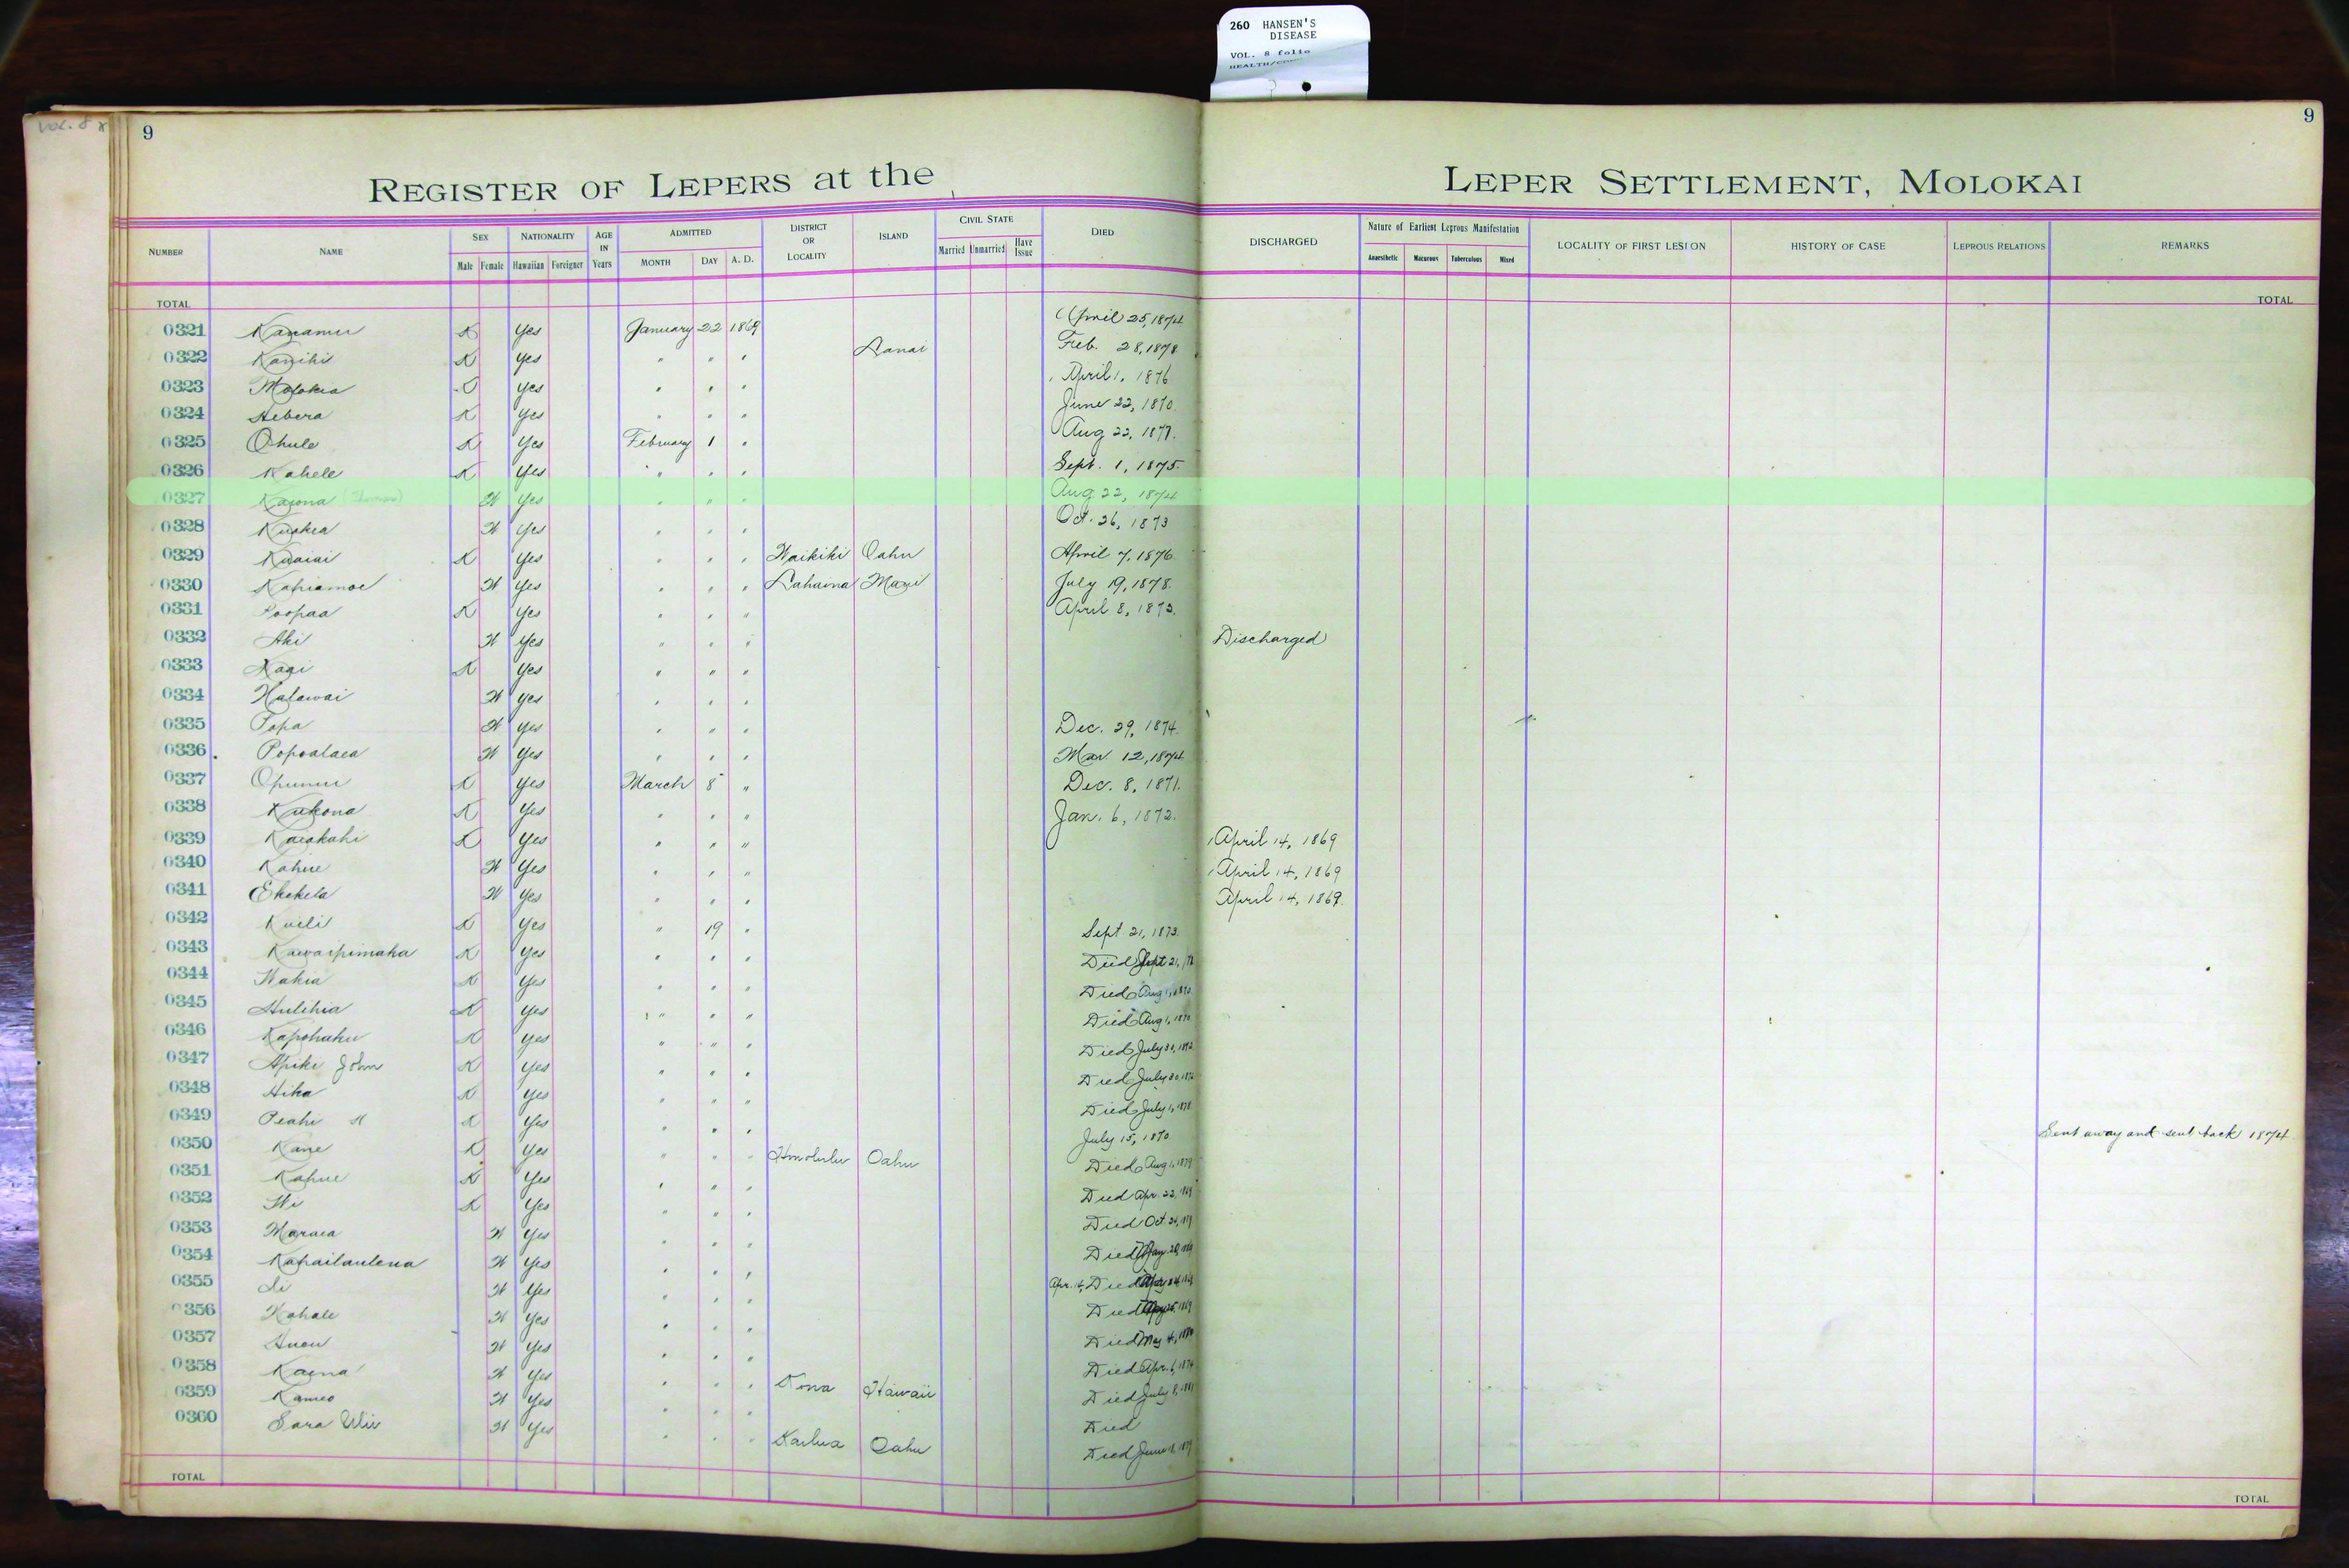 260 HANSEN'S
DISEASE
VOL. 8 folio
VOL. 8
9
9
REGISTER OF LEPERS at the LEPER SETTLEMENT, MOLOKAI
NUMBER NAME SEX Male Female NATIONALITY Hawaiian Foreigner AGE IN Years ADMITTED MONTH DAY A. D. DISTRICT OR LOCALITY ISLAND CIVIL STATE Married Unmarried Have Issue DIED DISCHARGED Nature of Earliest Leprous Manifestation Anaesthetic Macurous Tuberculous Mixed LOCALITY OF FIRST LESION HISTORY OF CASE LEPROUS RELATIONS REMARKS
TOTAL TOTAL
0321 Kanamu K Yes January 22 1869 April 25, 1874
0322 Kanihi K Yes " " " Lanai Feb. 28, 1878
0323 Molokia Yes " " " April 1, 1876
0324 Hebera K Yes " " " June 22, 1870
0325 Ohule K Yes February 1 " Aug 22, 1877.
0326 Kahele K Yes " " " Sept. 1, 1875.
0327 Kaiona W Yes " " " Aug. 22, 1874
0328 W Yes " " " Oct. 26, 1873
0329 Kuaiai K Yes " " " Waikiki Oahu April 7, 1876
0330 Kahiamoe W Yes " " " Lahaina Maui July 19, 1878.
0331 Poopaa K Yes " " " April 8, 1873.
0332 Aki W Yes " " " Discharged
0333 K Yes " " "
0334 Halawai W Yes " " "
0335 Popa W Yes " " " Dec. 29, 1874
0336 Popoalaea W Yes " " " Mar 12, 1874
0337 Opunui K Yes March 8 " Dec. 8, 1871.
0338 Kukona K Yes " " " Jan. 6, 1872.
0339 Kaiakahi K Yes " " " April 14, 1869
0340 Kahue W Yes " " " April 14, 1869
0341 Ekekela W Yes " " " April 14, 1869.
0342 Kuili K Yes " 19 " Sept. 21, 1873.
0343 Kawaipimaka K Yes " " " Died Sept 21,
0344 Wahia K Yes " " " Died Aug 1, 1870
0345 Hulihia K Yes " " " Died Aug 1, 1870
0346 Kapohaku K Yes " " " Died July 30, 1872
0347 Apiki John K Yes " " " Died July 30, 1872
0348 Hika K Yes " " " Died July 1, 1878
0349 Peahi K Yes " " " July 15, 1870 Sent away and sent back 1874
0350 Kane K Yes " " " Honolulu Oahu Died Aug 1, 1879
0351 Kahue K Yes " " " Died Apr. 22, 1869
0352 K Yes " " " Died Oct. 24, 1869
0353 Maraea W Yes " " " Died May 20, 1869
0354 Kahailaulena W Yes " " " Apr. 14, Died
0355 W Yes " " " Died
0356 Kahale W Yes " " " Died May 4, 1880
0357 W Yes " " " Died Apr. 6, 1874
0358 Kaena W Yes " " " Kona Hawaii Died July 8, 1881
0359 Kameo W Yes " " " Died
0360 Sara W Yes " " " Kailua Oahu Died June 18, 1879
TOTAL TOTAL